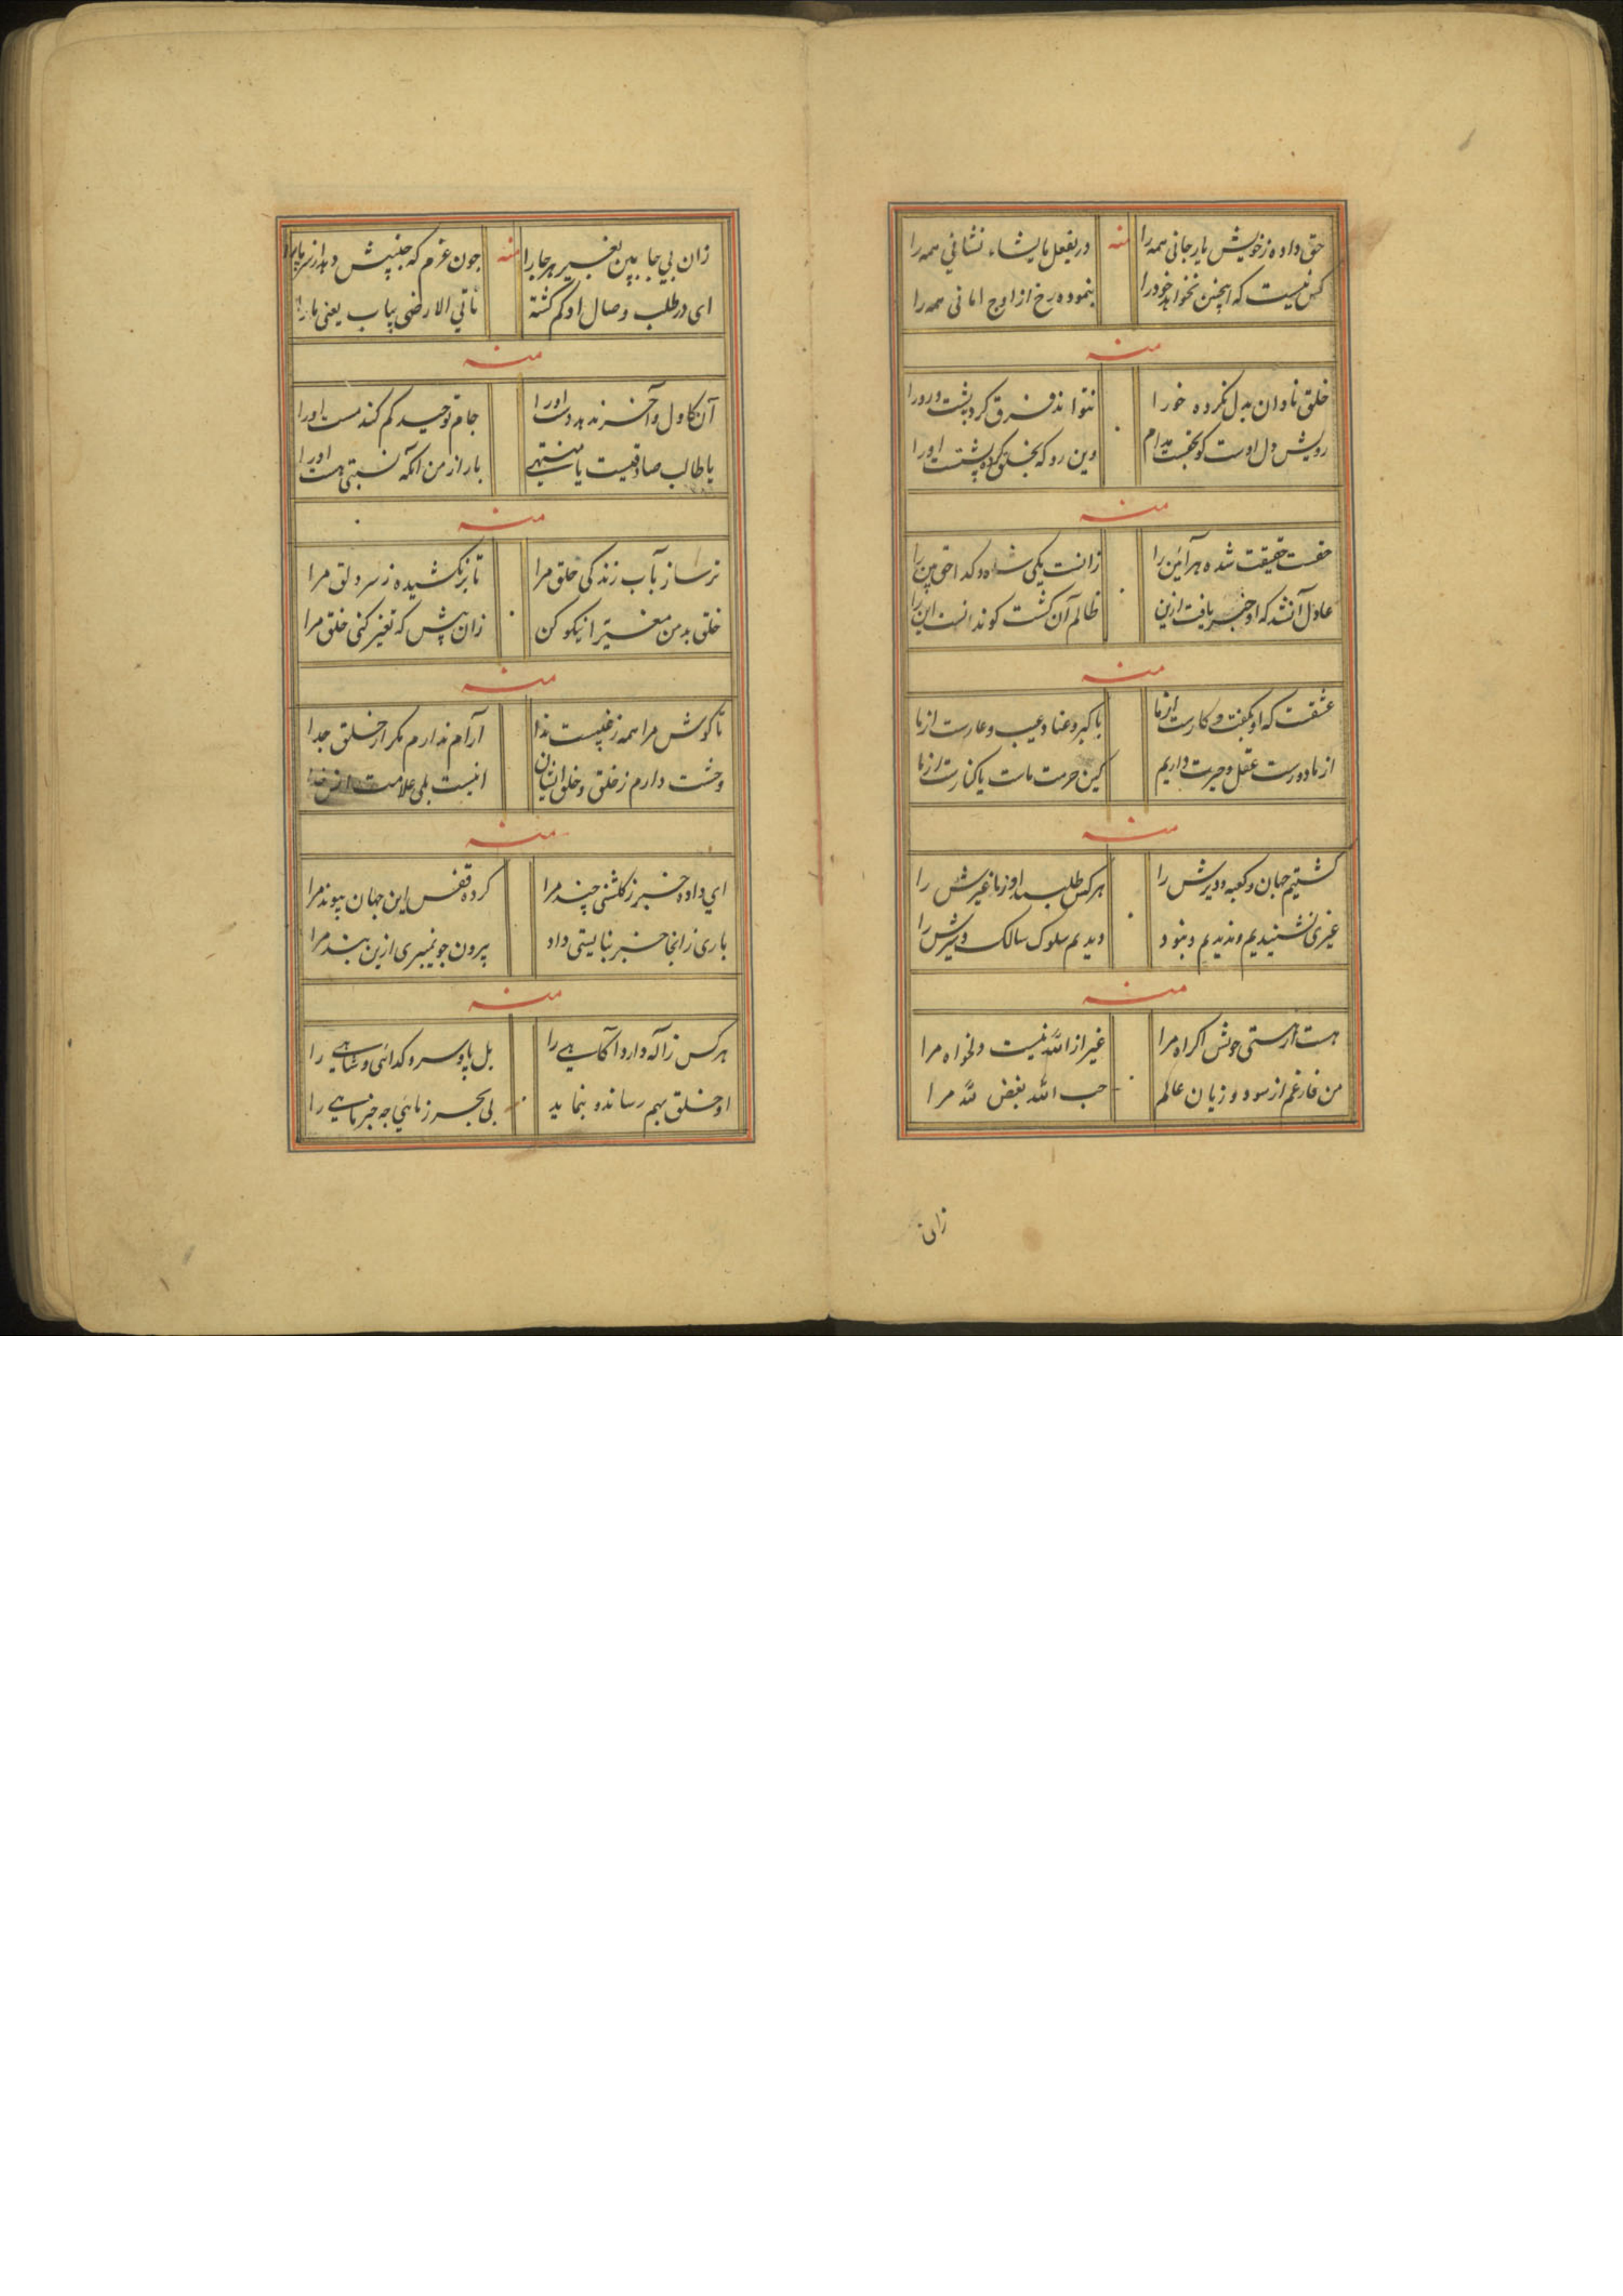 حق داده ز خویش یار جانی همه را منه در یفعل ما یشاء نشانی همه را
کس نیست که اینچنین نخواهد خود را بنموده رخ از اوج امانی همه را
منه
خلق نادان بدل نکرده خو را نتواند فرق کرد پشت و رو را
رویش دل اوست کو بحقست مدام وین رو که بخلق کرده پشتست او را
منه
حقیقت شده هر آئین را زانست یکی شاه و کدا حق بین را
عادل آنشد که او خبر یافت ازین ظالم آن کشت کو ندانست این را
منه
عشقست که او بکفت و کارست از ما با کبر و عناد و عیب و عارست از ما
از ما دورست عقل و حیرت داریم کین حرمت ماست یا کنارست از ما
منه
کشتیم جهان و کعبه و دیرش را هر کس طلبد او ز ما غیرش را
غیری نشنیدیم و ندیدیم و نبود دیدیم سلوک سالک و سیرش را
منه
هست از هستی خویش اکراه مرا غیر از الله نیست دلخواه مرا
من فارغم از سود و زیان عالم حب الله بغض لله مرا
زان
زان بی جا بین بغیر هر جا را منه چون عزم که جنبش دهد از سر پا را
ای در طلب وصال او کم کشته ناتی الارضی بیاب یعنی ما را
منه
آن کاول و آخر ندهد دست او را جام توحید کم کند مست او را
یا طالب صادقیست یا منتهیی بار از من آنکه نسبتی هست او را
منه
تر ساز بآب زندکی حلق مرا تا بر نکشیده ز سر دلق مرا
خلق بد من مغیرا نیکو کن زان پیش که تغییر کنی خلق مرا
منه
تا کوش مرا همه ز غیبست ندا آرام ندارم مکر از خلق جدا
وحشت دارم ز خلق و خلق ایشان انیست بلی علامت انس خدا
منه
ای داده خبر ز کلشنی چند مرا کرده قفس این جهان پیوند مرا
باری ز آنجا خبر نبایستی داد بیرون چو نمیبری ازین بند مرا
منه
هر کس ز اله دارد آکاهی را بل پا و سر و کدائی و شاهی را
او خلق بهم رساند و بنماید بی بحر ز مائی چه خبر ماهی را